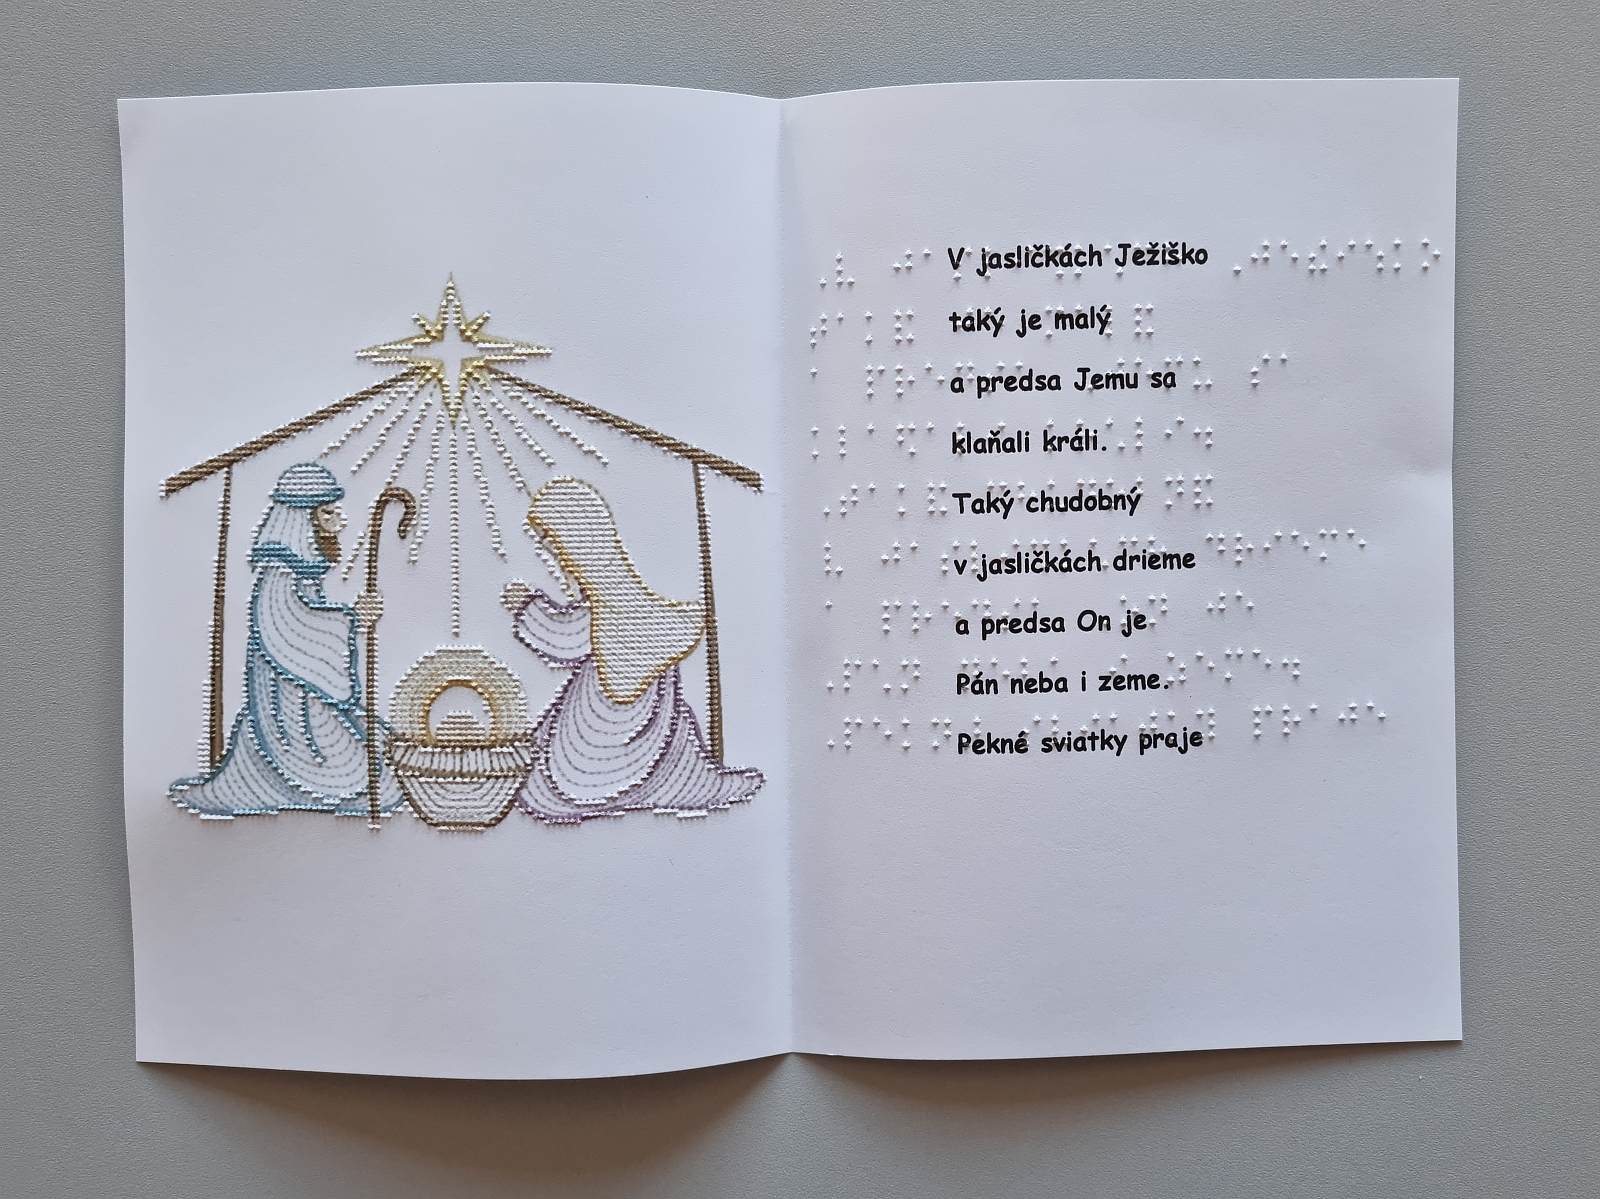 V jasličkách Ježiško
taký je malý
a predsa Jemu sa
klaňali králi.
Taký chudobný
v jasličkách drieme
a predsa On je
Pán neba i zeme.
Pekné sviatky praje